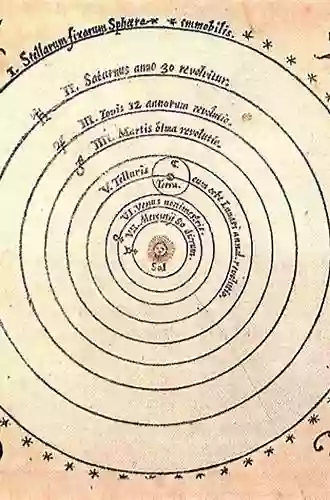 I. Stellarum fixarum Sphæra immobilis.
II. Saturnus anno 30 revolvitur.
III. Jovis 12 annorum revolutio.
IIII. Martis bima revolutio.
V. Telluris
Terra.
cum orbe Lunari annua revolutio.
VI. Venus nonimestris.
VII. Mercurij 80 dierum.
Sol